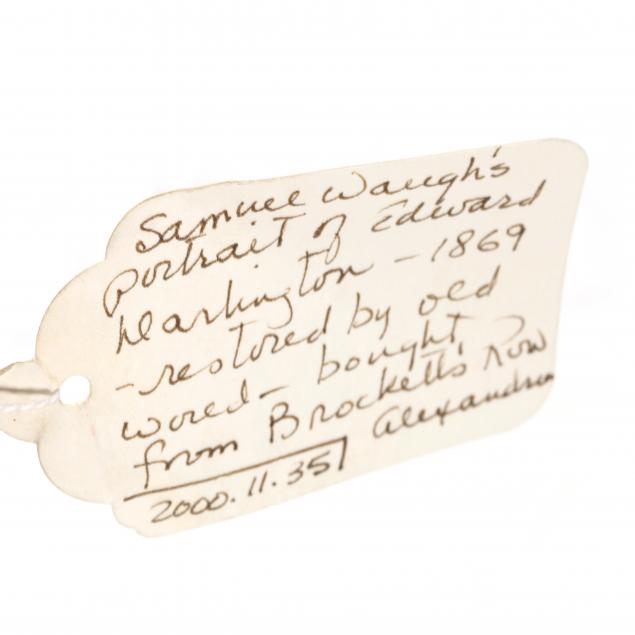 Samuel Waugh's
portrait of Edward
Washington - 1869
- restored by old
world - bought
from Brockett's Row
Alexandria
2000.11.35